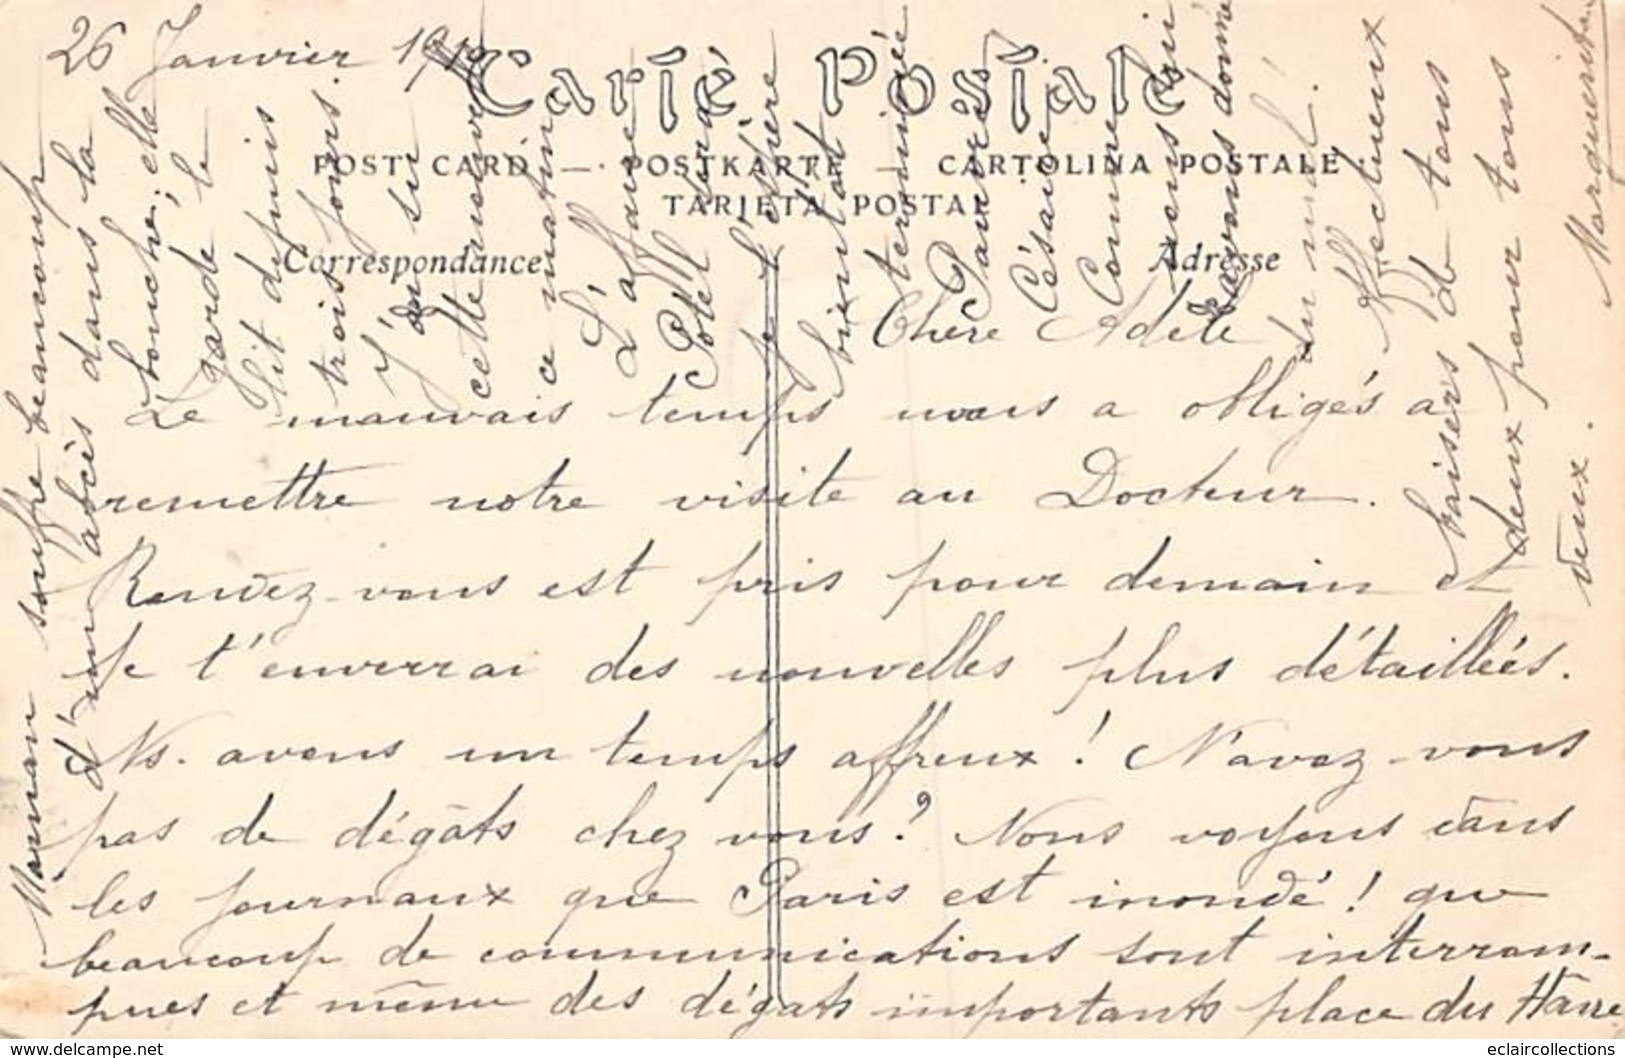 26 Janvier 1910
Carte Postale
POST CARD — POSTKARTE — CARTOLINA POSTALE
TARJETA POSTAL
Correspondance
Adresse
Chère Adèle
Le mauvais temps nous a obligés a
remettre notre visite au Docteur.
Rendez-vous est pris pour demain et
Je t'enverrai des nouvelles plus détaillées.
Ns. avons un temps affreux ! N'avez-vous
pas de dégâts chez vous ? Nous voyons dans
les journaux que Paris est inondé ! que
beaucoup de communications sont interrom-
pues et même des dégats importants place du Hâvre
Maman souffre beaucoup
d'un abcès dans la
bouche ; elle
garde le
lit depuis
trois jours.
J'ai su
cette nouvelle
ce matin.
L'affaire
Potel sera
je l'espère
bientôt
terminée
Pauvres
Césaire
Comme lui
nous
avons donné
du mal !
Affectueux
baisers de tous
deux pour tous
deux.
Marguerite
www.delcampe.net
eclaircollections